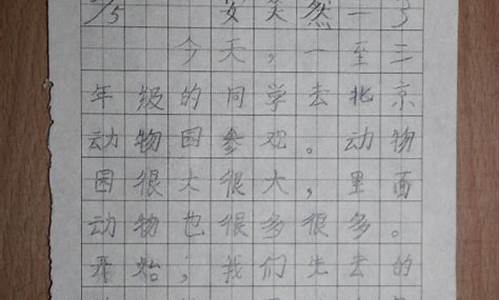 5 安笑然一3
今天,一至三
年级的同学去北京
动物园参观。动物
园很大很大,里面
动物也很多很多。
开始,我们先去的